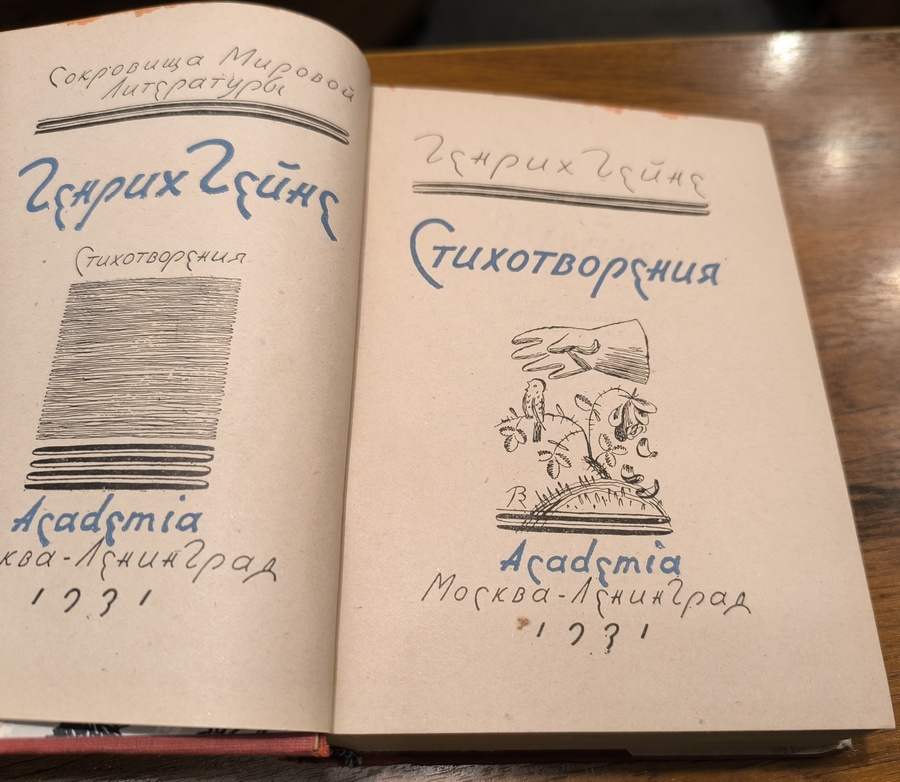 Сокровища Мировой
Литературы
Генрих Гейне
Стихотворения
Academia
ква-Ленинград
1931
Генрих Гейне
Стихотворения
Academia
Москва-Ленинград
1931